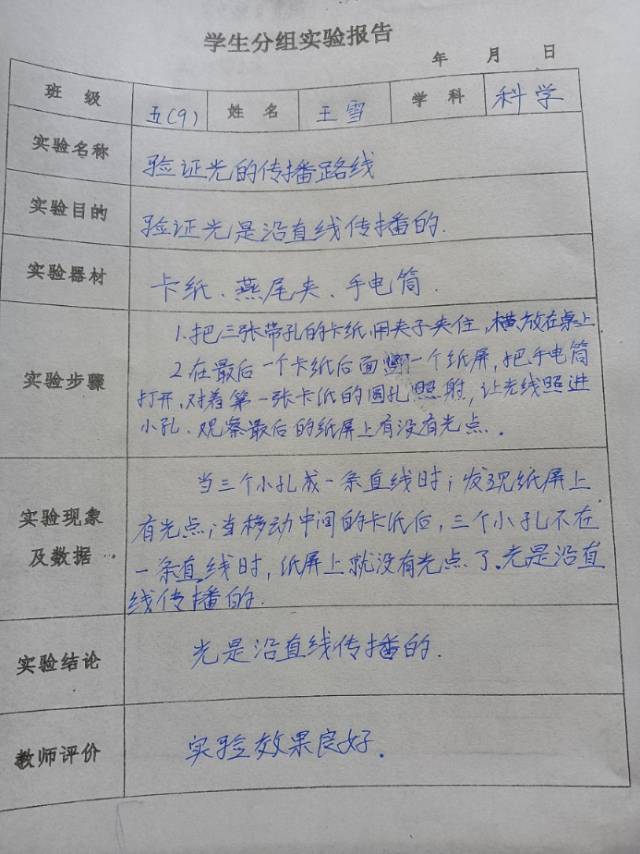 学生分组实验报告
年 月 日
班级 五(9) 姓名 王雪 学科 科学
实验名称 验证光的传播路线
实验目的 验证光是沿直线传播的.
实验器材 卡纸、燕尾夹、手电筒.
实验步骤
1.把三张带孔的卡纸用夹子夹住,横放在桌上
2在最后一个卡纸后面 一个纸屏,把手电筒
打开,对着第一张卡纸的圆孔照射,让光线照进
小孔、观察最后的纸屏上有没有光点.
实验现象及数据
当三个小孔成一条直线时;发现纸屏上
有光点;当移动中间的卡纸后,三个小孔不在
一条直线时,纸屏上就没有光点了.光是沿直
线传播的.
实验结论 光是沿直线传播的.
教师评价 实验效果良好.